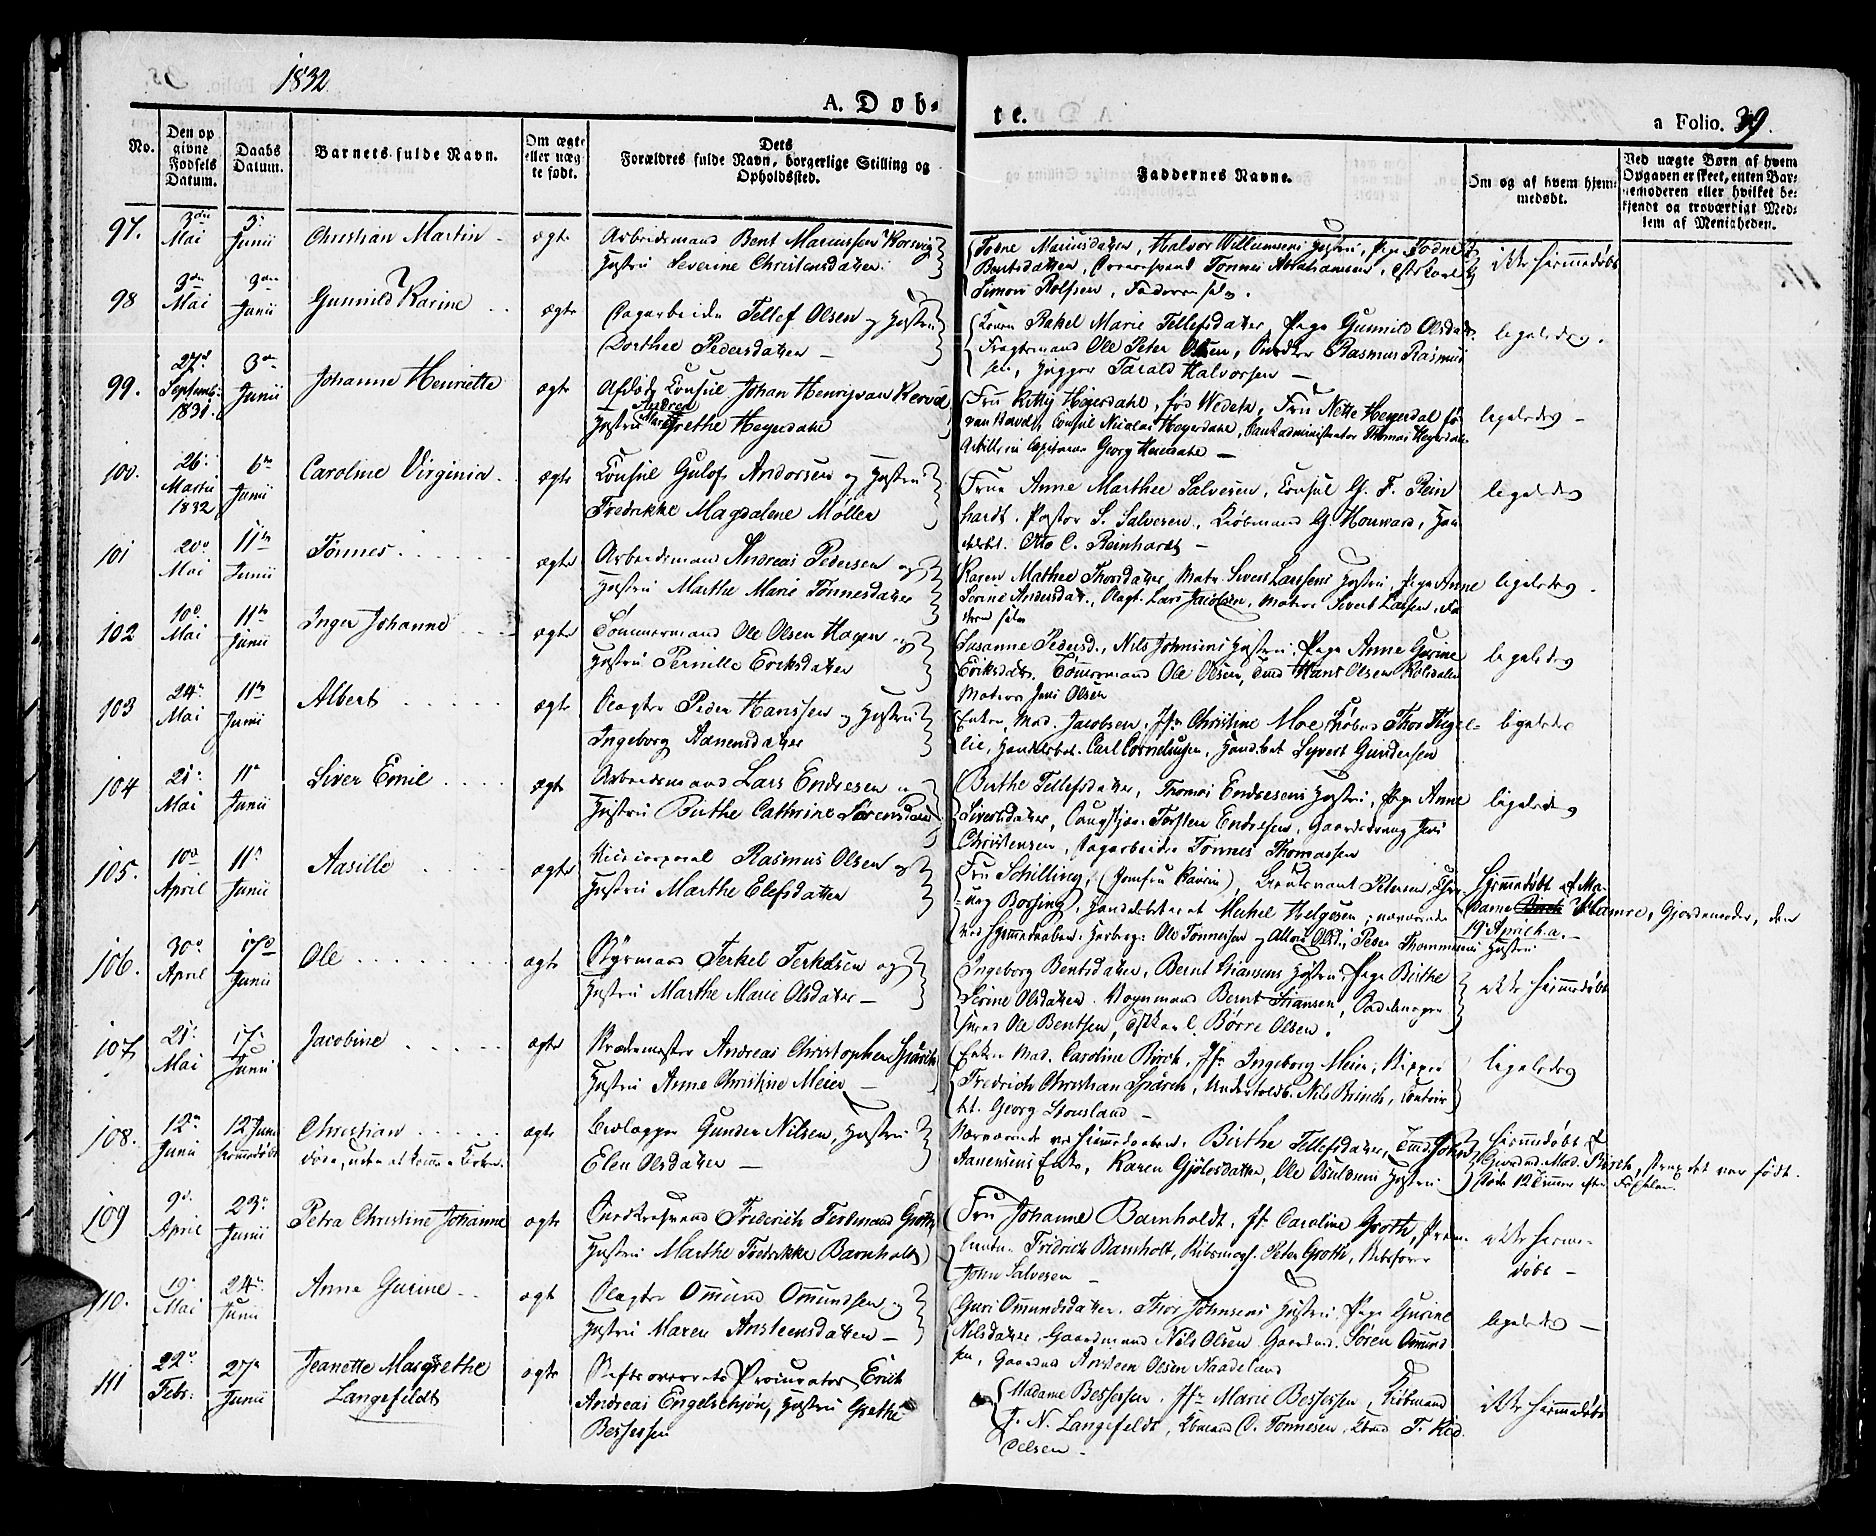 1832
A. Döb-
te.
a Folio. 39.
No.
Den op
givne
Födsels
Datum.
Daabs
Datum.
Barnets fulde Navn.
Om ægte
eller uæg-
te født.
Dets
Forældres fulde Navn, borgerlige Stilling og
Opholdssted.
Faddernes Navne.
Om og af hvem hjem-
medøbt.
Ved uægte Børn af hvem
Opgaven er skeet, enten Bar-
nemoderen eller hvilket be-
kjendt og troværdigt Med-
lem af Menigheden.
97.
Mai
3
Junii
Christian Martin
ægte
Arbeidsmand Bent Mariussen Korsvig
Hustru Severine Christensdatter.
Todne Mariusdatter, Halvor Willumsens Hustru, Pige Todne
Bentsdatter, Tönnes Abrahamsen,
Simon Rolfsen, Faderen selv.
ikke hiemmedøbt
98
Mai
Junii
Gunnild Karine
ægte
Dagarbeider Tellef Olsen og Hustru
Dorthee Pedersdatter
Konen Rakel Marie Tellefsdatter, Pige Gunnild Olsdatter
Fragtmand Ole Peter Olsen, Snedker Rasmus Rasmus
sen, Tarald Halvorsen
ligeledes.
99.
27
Septemb.
1831.
3
Junii
Johanne Henriette
ægte
Afdøde Consul Johan Henry van Kervel
Andrea
Hustru Margrethe Heyerdahl
Fru Kitty Heyerdahl, fød Wedeln, Fru Nette Heyerdal fö
van Kervel, Consul Nicolai Heyerdahl, Bankadministrator Thomas Heyerdal
Artilleri Capitain Georg Heyerdahl
ligeledes
100.
26
Martii
1832
6
Junii
Caroline Virginia
ægte
Consul Gulof Andorsen og Hustru
Fredrikke Magdalene Möller
Frue Anne Marthee Salvesen, Consul G. F. Rein
hardt. Pastor S. Salvesen, Kiöbmand G. Houward, Han
delsbet. Otto C. Reinhardt
ligeledes
101
20
Mai
11
Junii
Tönnes
ægte
Arbeidsmand Andreas Pedersen og
Hustru Marthe Marie Tönnesdatter
Karen Mathee Thorsdatter, Matr. Sivert Larssens Hustru, Pige Anne
Serine Andersdat., Lars Jacobsen, Matros Sivert Larsen, Fa
deren selv
ligeledes.
102
10
Mai
11
Junii
Inger Johanne
ægte
Tömmermand Ole Olsen Hagen og
Hustru Pernille Eriksdatter
Susanne Pedersd., Nils Johnsens Hustru, Pige Anne Gurine
Eriksdatt. Tömmermand Ole Olsen, Hans Olsen
Matros Jens Olsen
ligeledes
103
24
Mai
11
Junii
Albert
ægte
Peder Hanssen og Hustru
Ingeborg Aanensdatter
Enken Mad. Jacobsen, Jfr Christine Moe, Thor
lie, Handelsbet. Carl Corneliusen, Handl.bet Syvert Gundersen
ligeledes
104
21
Mai
11
Junii
Siver Emil
ægte
Arbeidsmand Lars Endresen
Hustru Birthe Cathrine Sörensdatt
Birthe Tellefsdatter, Thomas Endresens Hustru, Pige Anne
Siversdatter, Torsten Endresen, Gaardsdreng Jens
Christensen, Dagarbeider Tönnes Thomassen
ligeledes
105.
10
April
11
Junii
Aasille
ægte
Vicecorporal Rasmus Olsen og
Hustru Marthe Elefsdatter
Fru Schilling, (Jomfru Ravin), Lieutenant Petersen,
Handelsbet. Michel Helgesen, nærværende
ved hjemmedaaben. Ole Tönnesen Peder Thommesens Hustru
Hjemmedøbt af Ma-
dame Hamre, Gjordemoder, den
19 April h. a.
106.
30
April
17
Junii
Ole
ægte
Styrmand Terkel Terkelsen og
Hustru Marthe Marie Olsdatter
Ingeborg Bentsdatter, Bernt Hansens Hustru, Pige Birthe
Serine Olsdatter. Vognmand Bernt Hansen, Sadelmager
Ole Bentsen, Börre Olsen.
ikke hiemmedøbt
107
21
Mai
17
Junii
Jacobine
ægte
Skrædermester Andreas Christopher Spärck
Hustru Anne Christine Meier
Enken Mad. Caroline Birch, Jfr Ingeborg Meier, Skipper
Fredrich Christian Spärck, Undertoldb. Nils Brinch,
Georg Stousland
ligeledes
108.
12
Junii
12 Juni
hiemmedøbt
Christian
døde, uden at komme i Kirken.
ægte
Gunder Nilsen, Hustru
Elen Olsdatter
Nærværende ved hiemmedaaben. Birthe Tellefsdatter,
Aanensens Enke, Karen Gjölesdatter, Ole Osuldsens Hustru
hiemmedøbt af
Gjordmd. Mad. Birch, strax det var født.
døde 12 Timer efter Fødselen.
109
9
April
23
Junii
Petra Christine Johanne
ægte
Snedkersvend Frederich Ferdinand Groth
Hustru Marthe Fredrikke Barnholdt
Fru Johanne Barnholdt, Jfr Caroline Groth, Prem.
lieutn. Fridrich Barnholt, Peter Groth,
John Salvesen
ikke hiemme-
døbt
110.
19
Mai
24
Junii
Anne Gurine
ægte
Omund Omundsen og
Hustru Maren Ansteensdatter
Guri Omundsdatter. Thor Johnsens Hustru Pige Gurine
Nilsdatter. Gaardmand Nils Olsen Gaardmd. Sören Omund
sen, Gaardmd Ansteen Olsen Naadeland
ligeledes
111
22
Febr.
27
Junii
Jeanette Margrethe
Langefeldt
ægte
Stiftsoverrets Procurator Erich
Andreas Engelschjön, Hustru Grethe
Bessesen
Madame Bessesen. Jfr Marie Bessesen, Kiöbmand
J. N. Langefeldt, Kbmand O. Tönnesen, Kbmd T. Kid
delsen
ikke hiemmedøbt